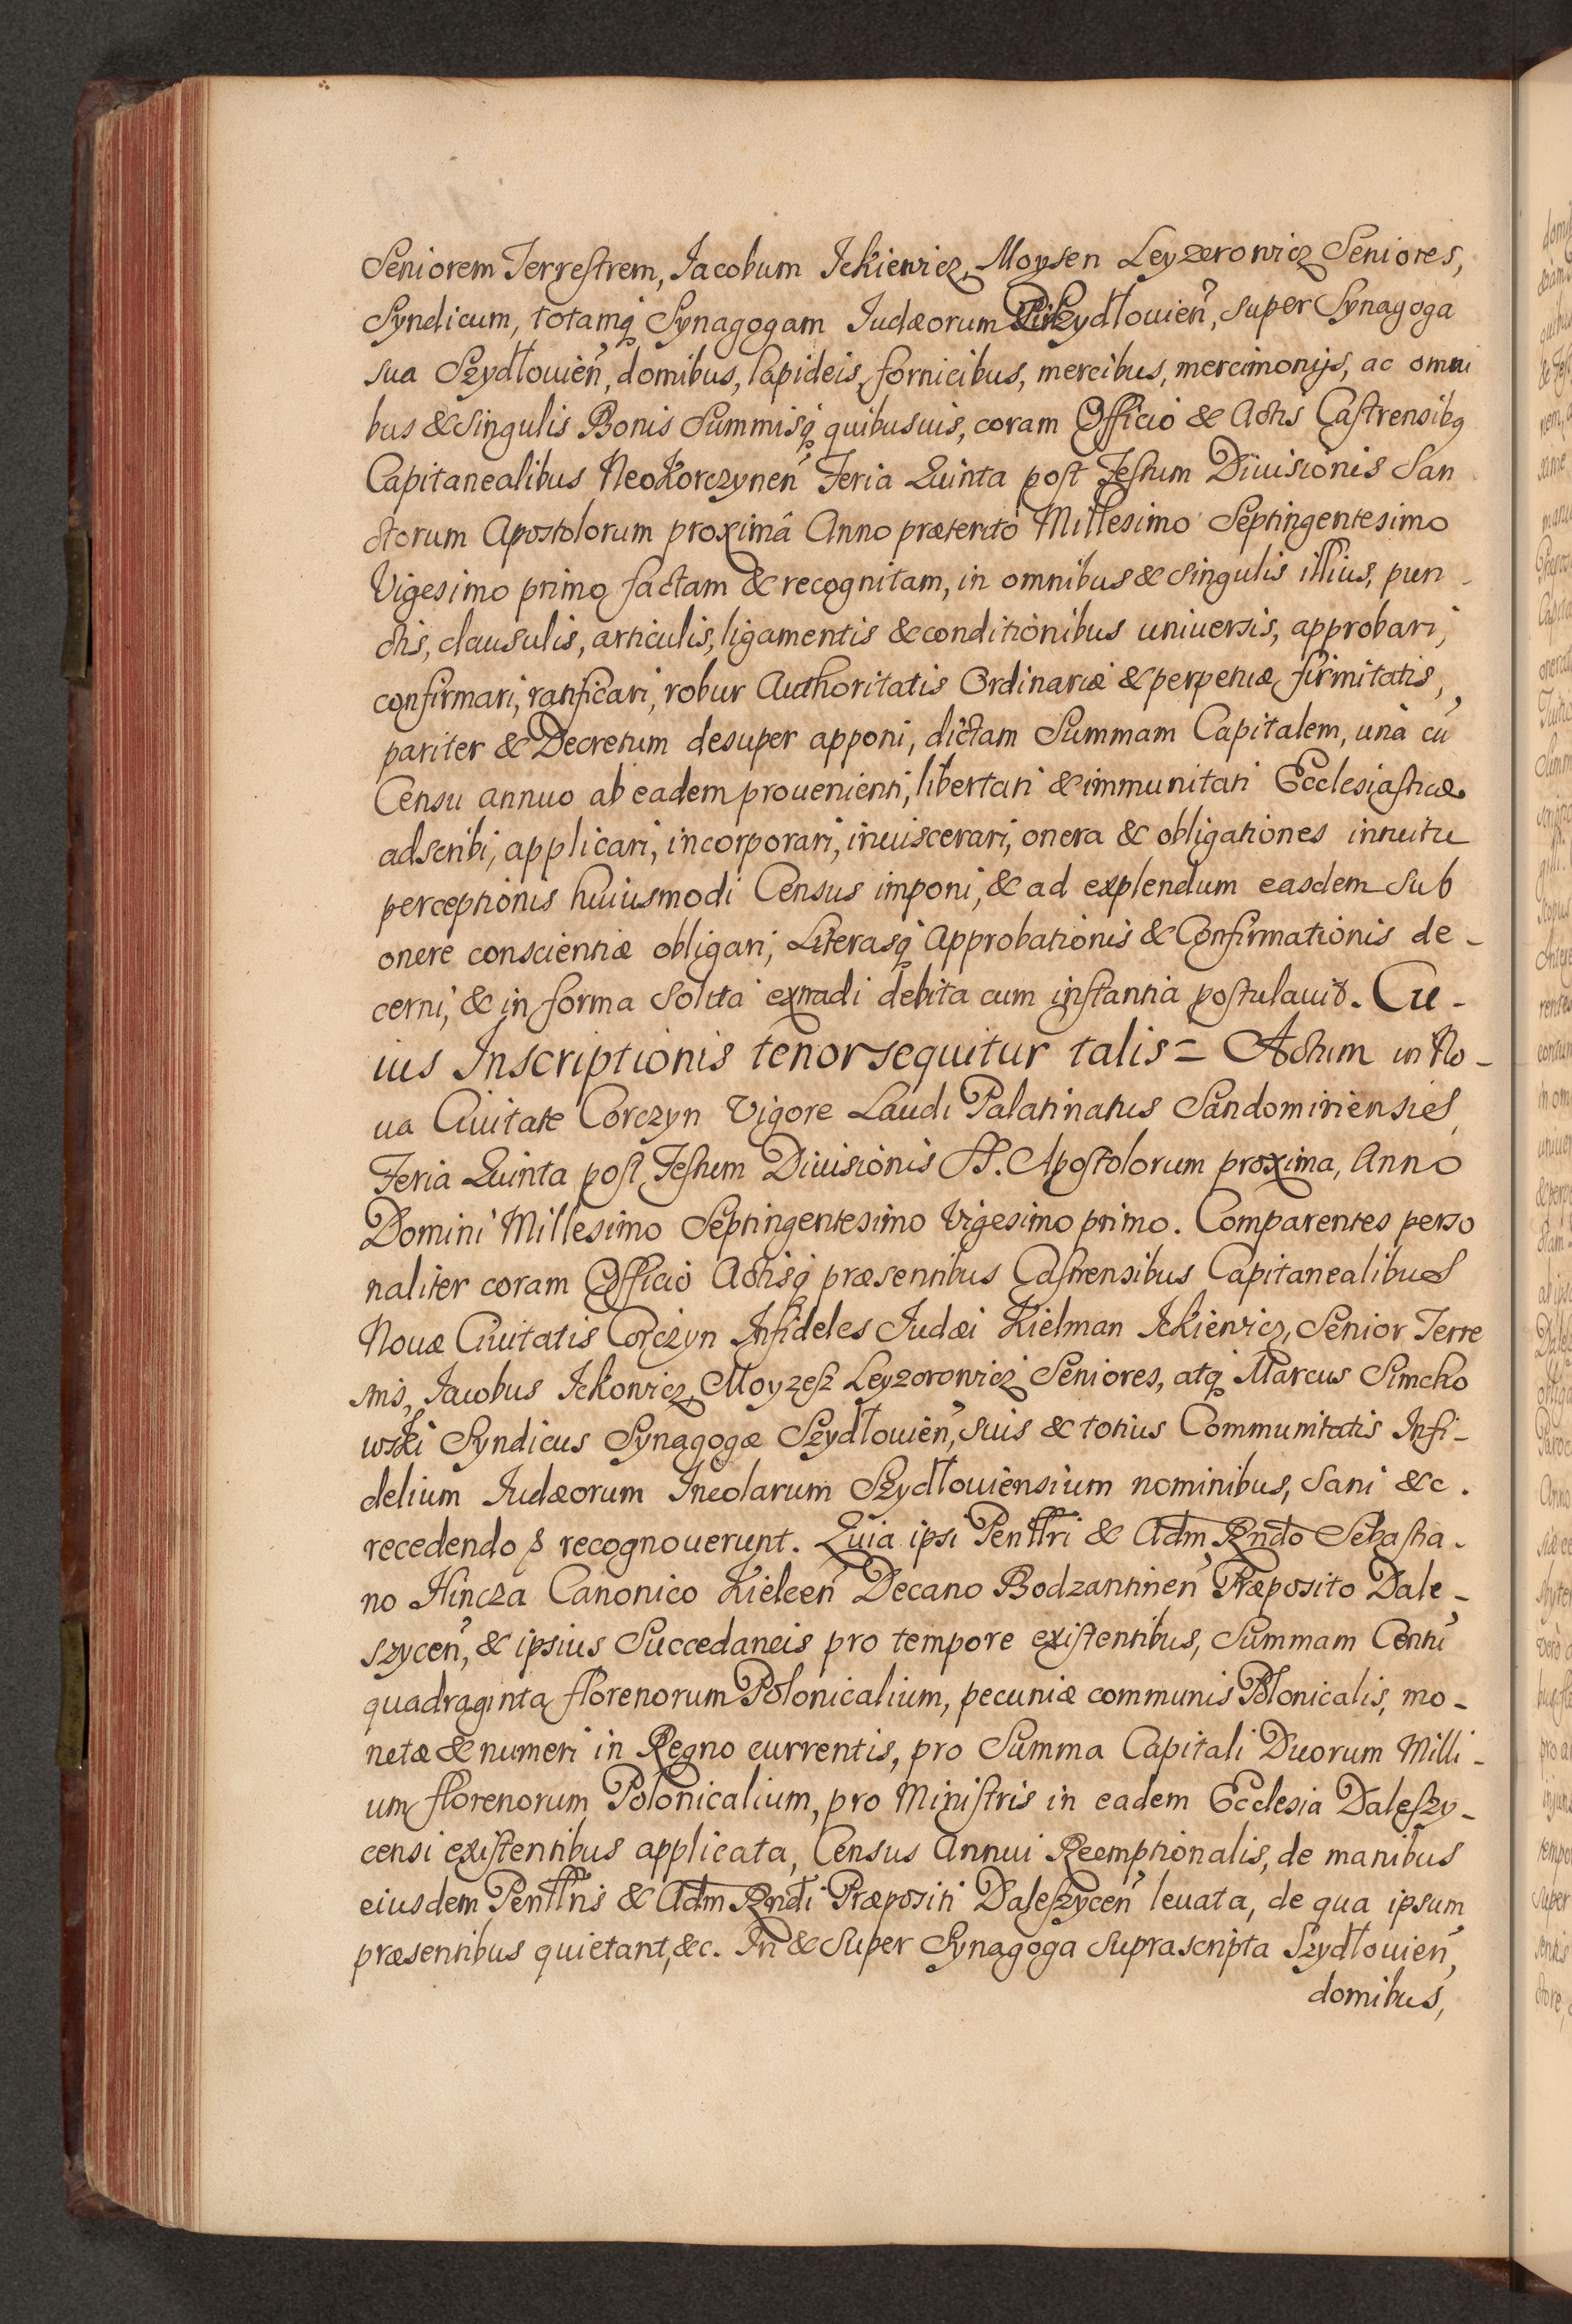 Seniorem Terrestrem, Jacobum Jckiewicz, Moysen Leyzerowicz Seniores,
Syndicum, totamq; Synagogam Judæorum Szydłouieñ, super Synagoga
sua Szydłouieñ, domibus, lapideis, fornicibus, mercibus, mercimonijs, ac omni
bus & singulis Bonis Summisq; quibusuis, coram Officio & Actis Castrensibq
Capitanealibus NeoKorczyneñ Feria Quinta post Festum Diuisionis San
ctorum Apostolorum proximâ Anno præterito Millesimo Septingentesimo
Vigesimo primo factam & recognitam, in omnibus & singulis illius, pun -
ctis, clausulis, articulis, ligamentis & conditionibus uniuersis, approbari,
confirmari, ratificari, robur Authoritatis Ordinariæ & perpetuæ firmitatis,
pariter & Decretum desuper apponi, dictam Summam Capitalem, unà cũ
Censu annuo ab eadem prouenienti, libertati & immunitati Ecclesiasticæ
adscribi, applicari, incorporari, inuiscerari, onera & obligationes intuitu
perceptionis huiusmodi Census imponi, & ad explendum easdem sub
onere conscientiæ obligari, Literasq; Approbationis & Confirmationis de -
cerni, & in forma solita extradi debita cum instantia postulauit. Cu -
ius Inscriptionis tenor sequitur talis = Actum in No -
ua Ciuitate Corczyn Vigore Laudi Palatinatus Sandomiriensis,
Feria Quinta post Festum Diuisionis SS. Apostolorum proxima, Anno
Domini Millesimo Septingentesimo Vigesimo primo. Comparentes perso
naliter coram Officio Actisq; præsentibus Castrensibus Capitanealibus
Nouæ Ciuitatis Corczyn Infideles Judæi Kielman Jckiewicz, Senior Terre
stris, Jacobus Jckowicz, Moyzesz Leyzorowicz Seniores, atq; Marcus Simcho
wski Syndicus Synagogæ Szydłouieñ, suis & totius Communitatis Infi -
delium Judæorum Incolarum Szydłouiensium nominibus, sani &c.
recedendo recognouerunt. Quia ipsi Penllri & Adm Rndo Sebastia -
no Hincza Canonico Kielceñ Decano Bodzantineñ Præposito Dale -
szyceñ, & ipsius Succedaneis pro tempore existentibus, Summam Centũ
quadraginta florenorum Polonicalium, pecuniæ communis Polonicalis, mo -
netæ & numeri in Regno currentis, pro Summa Capitali Duorum Milli -
um florenorum Polonicalium, pro Ministris in eadem Ecclesia Daleszy -
censi existentibus applicata, Census Annui Reemptionalis, de manibus
eiusdem Penllris & Adm Rndi Præpositi Daleszyceñ leuata, de qua ipsum
præsentibus quietant, &c. In & super Synagoga suprascripta Szydłouieñ,
domibus,